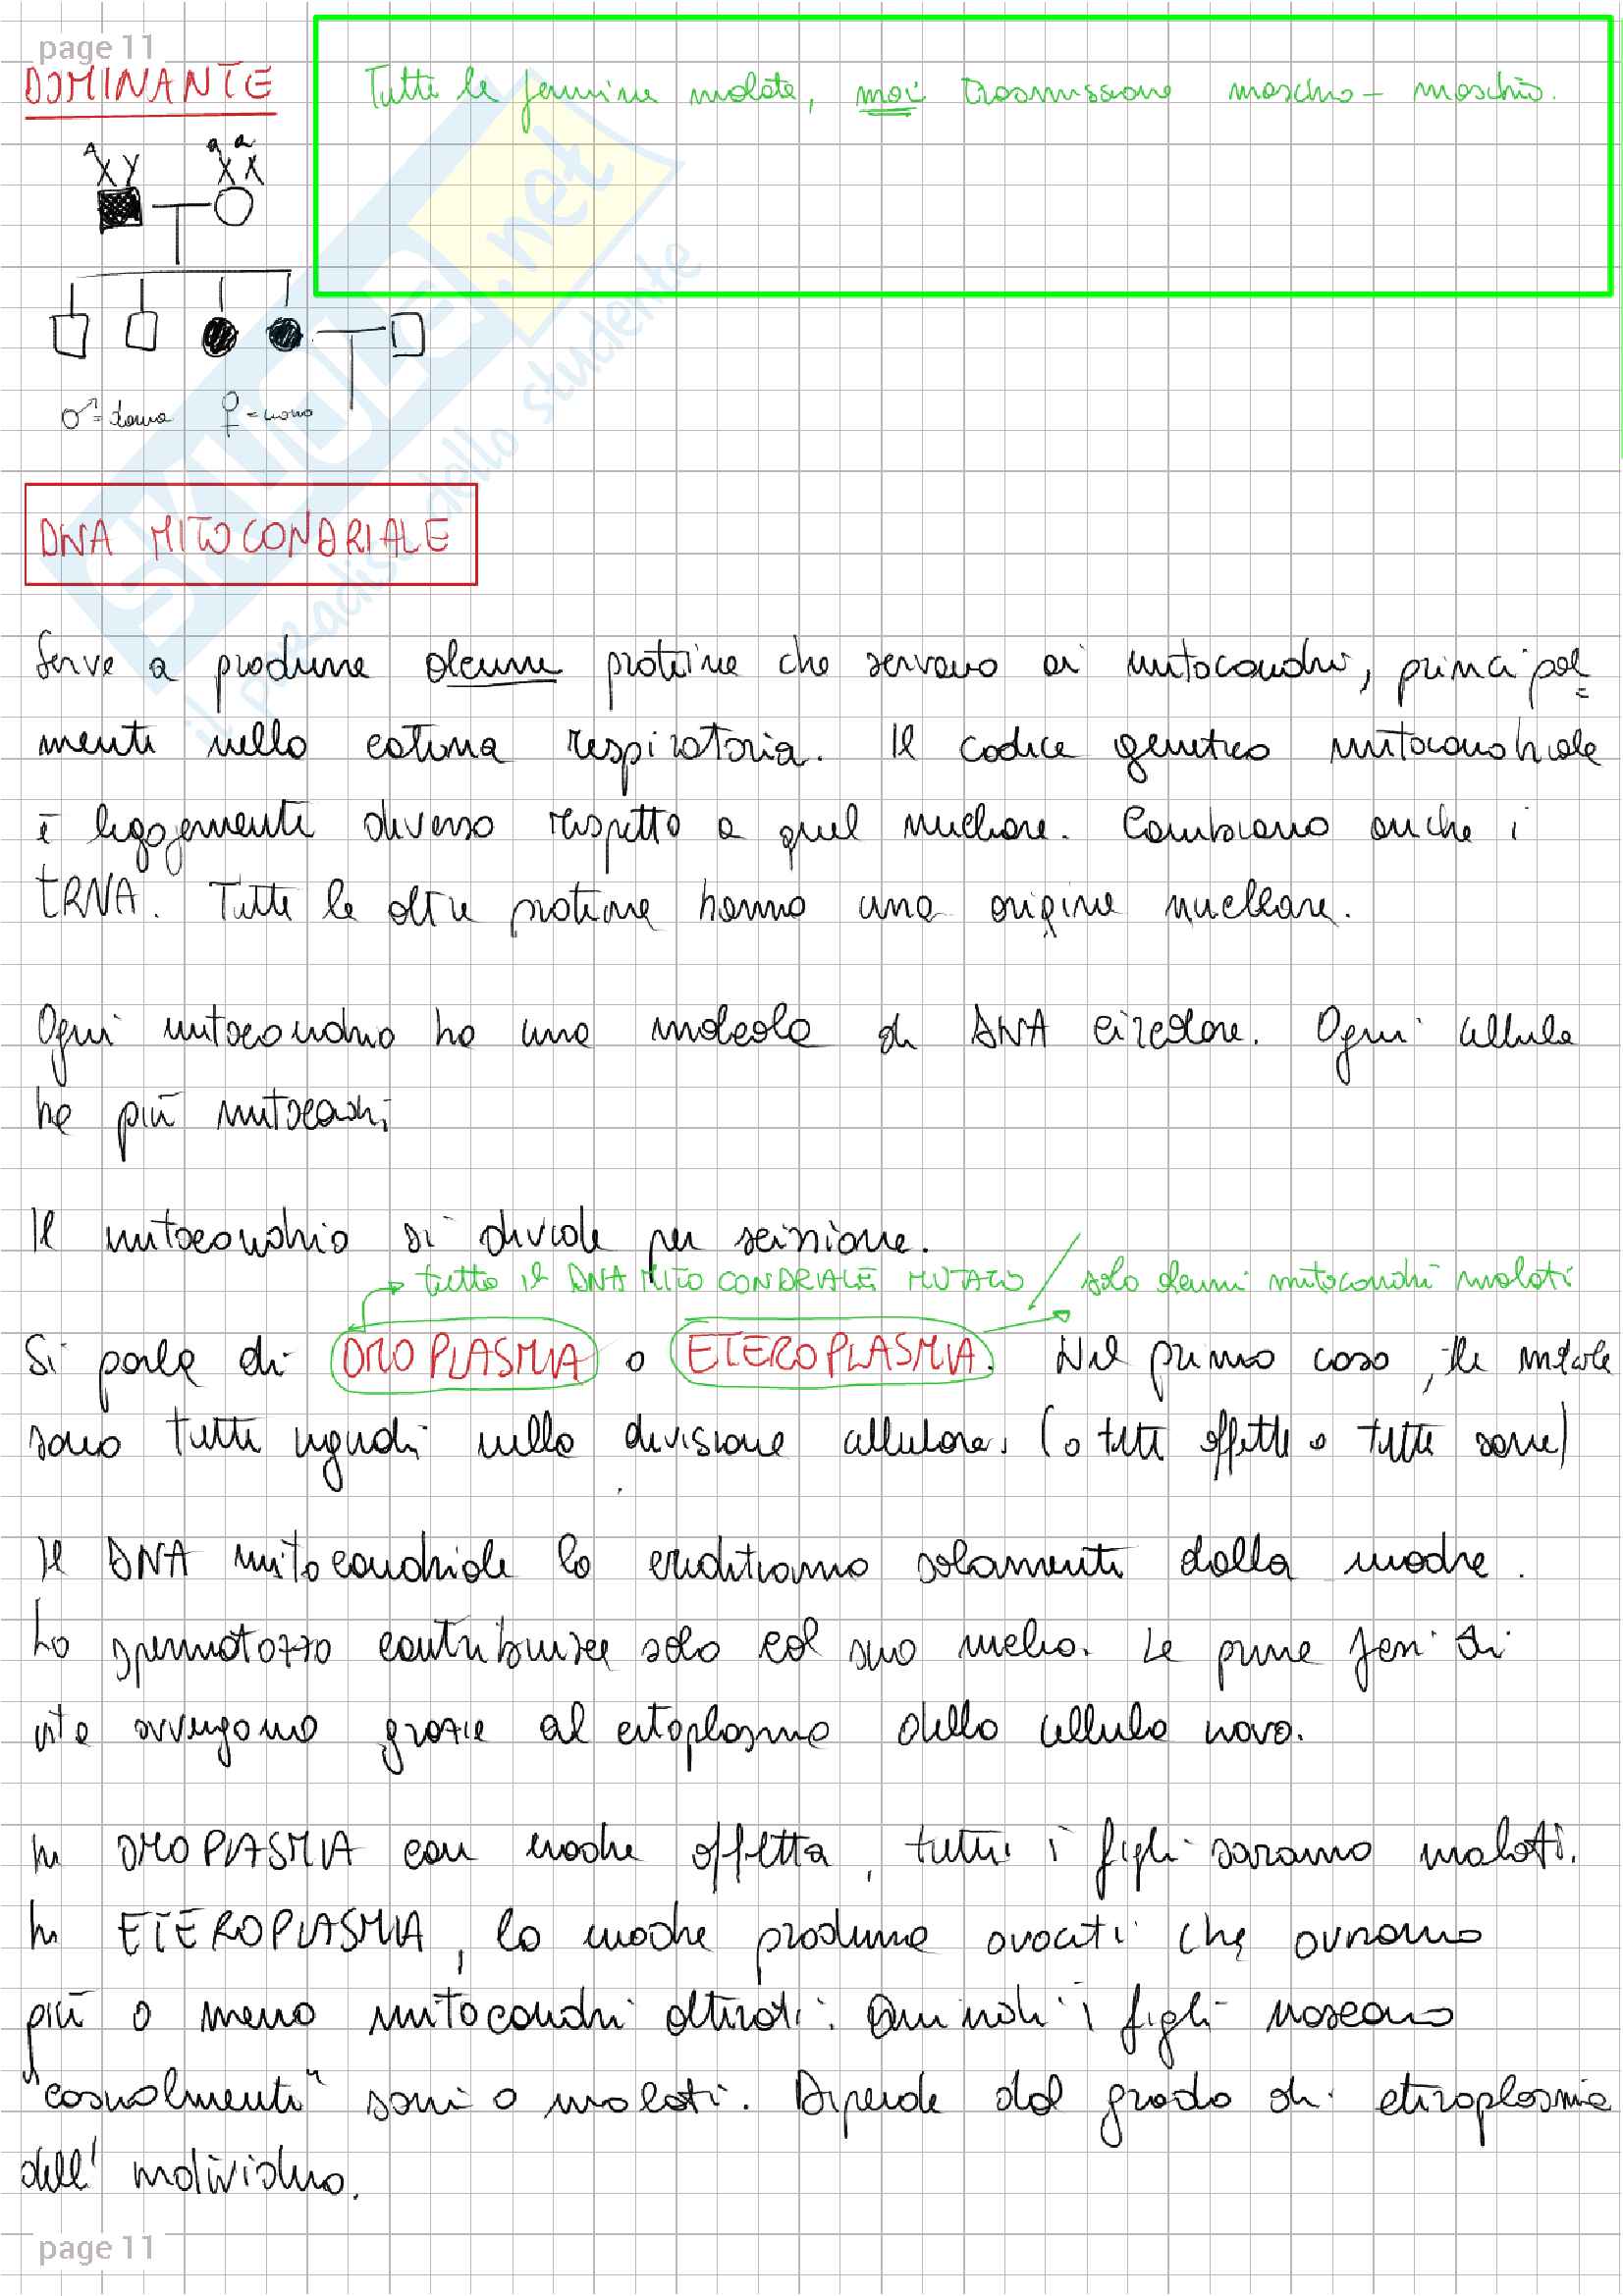 page 11
DOMINANTE
Tutte le femmine malate, mai trasmissione maschio - maschio.
A a a
XY XX
♂ = sono ♀ = sono
SKUOLA.net
il paradiso dello studente
DNA MITOCONDRIALE
Serve a produrre alcune proteine che servono ai mitocondri, principal=
mente nella catena respiratoria. Il codice genetico mitocondriale
è leggermente diverso rispetto a quel nucleare. Cambiano anche i
tRNA. Tutte le altre proteine hanno una origine nucleare.
Ogni mitocondrio ha una molecola di DNA circolare. Ogni cellula
ha più mitocondri
Il mitocondrio si divide per scissione.
tutto il DNA MITOCONDRIALE MUTATO / solo alcuni mitocondri malati
Si parla di OMOPLASMIA o ETEROPLASMIA. Nel primo caso, le
sono tutte uguali nella divisione cellulare. (o tutte affette o tutte sane)
Il DNA mitocondriale lo ereditiamo solamente dalla madre.
Lo spermatozoo contribuisce solo col suo nucleo. Le prime fasi di
vita avvengono grazie al citoplasma della cellula uovo.
In OMOPLASMIA con madre affetta, tutti i figli saranno malati.
In ETEROPLASMIA, la madre produrrà ovociti che avranno
più o meno mitocondri alterati. Quindi i figli nascono
"casualmente" sani o malati. Dipende dal grado di eteroplasmia
dell'individuo.
page 11